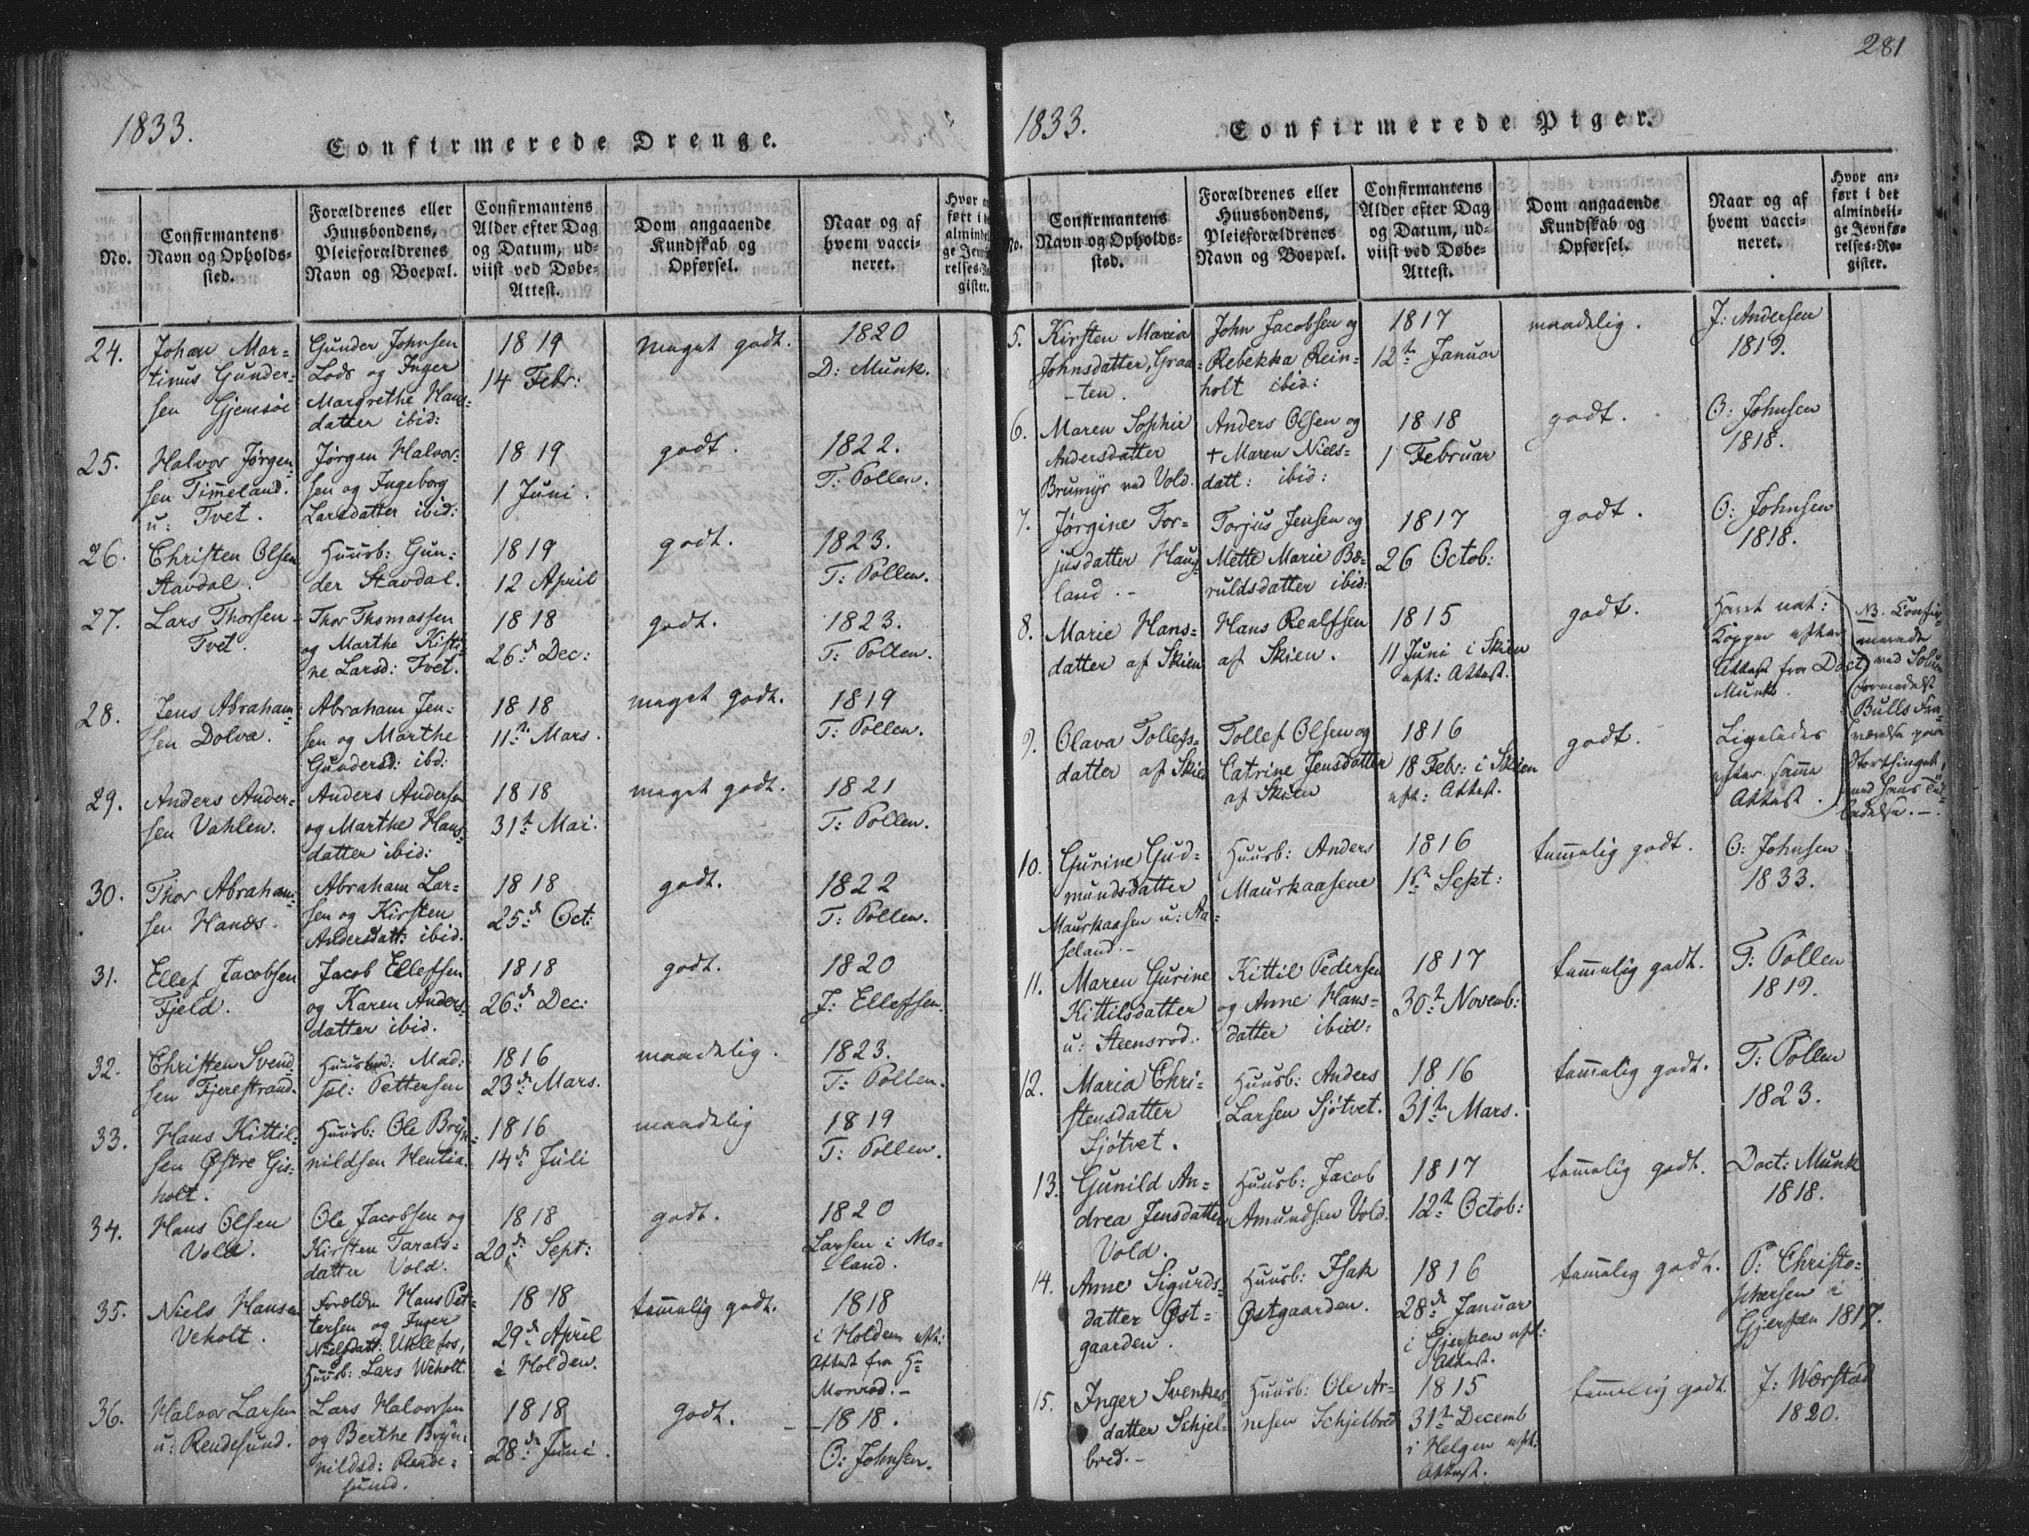 281
1833.
Confirmerede Drenge.
No.
Confirmantens
Navn og Opholds-
sted.
Forældrenes eller
Huusbondens,
Pleieforældrenes
Navn og Boepæl.
Confirmantens
Alder efter Dag
og Datum, ud-
viist ved Døbe-
Attest.
Dom angaaende
Kundskab og
Opførsel.
Naar og af
hvem vacci-
neret.
24.
Johan Mar-
tinus Gunder-
sen Gjemsøe
Gunder Johnsen
Lods og Inger
Margrethe Hans-
datter ibid:
1819
14 Febr:
meget godt.
1820
D: Munk.
25.
Halvor Jørgen-
sen Timeland.
u: Tvet.
Jørgen Halvor-
sen og Ingeborg
Larsdatter ibid:
1819
1 Juni.
godt.
1822.
T: Pollen.
26.
Christen Olsen
Stavdal.
Huusb: Gun-
der Stavdal.
1819
12 April
godt.
1823.
T: Pollen.
27.
Lars Thorsen
Tvet.
Thor Thomassen
og Marthe Kisti-
ne Larsd: Tvet.
1818
26d Dec:
godt.
1823.
T: Pollen.
28.
Jens Abraham-
sen Dolva.
Abraham Jen-
sen og Marthe
Gundersd: ibd:
1818
11te Mars.
meget godt.
1819
T: Pollen.
29.
Anders Ander-
sen Vahlen.
Anders Andersen
og Marthe Hans-
datter ibid:
1818
31t Mai.
meget godt.
1821
T: Pollen.
30.
Thor Abraham-
sen Hanæs.
Abraham Lar-
sen og Kirsten
Andersdatt: ibid.
1818
25d Oct:
godt.
1822
T: Pollen.
31.
Ellef Jacobsen
Fjeld.
Jacob Ellefsen
og Karen Anders-
datter ibid.
1818
26d Dec:
godt.
1820
J: Ellefsen.
32.
Christen Svend-
sen Fjerestrand.
Huusbond: Mad:
sol: Pettersen
1816
23d Mars.
maadelig.
1823.
T: Pollen.
33.
Hans Kittil-
sen Østre Gis-
holt.
Huusb: Ole Bryn-
nildsen Hentia.
1816
14d Juli
maadelig
1819
T: Pollen.
34.
Hans Olsen
Vold.
Ole Jacobsen og
Kirsten Tarals-
datter Vold.
1818
20d Sept:
godt.
1820
Larsen i Mo-
land.
35.
Niels Hansen
Veholt.
Forældre Hans Pet-
tersen og Inger
Nielsdatt: Ulefos,
Huusb: Lars Weholt.
1818
29d April
i Holden.
temmelig godt.
1818
i Holden eft:
Attest fra H:
Monrad.-
36.
Halvor Larsen
u: Rendesund.
Lars Halvorsen
og Berthe Bryn-
nildsd: Rende-
sund.
1818
28d Juni.
godt.
1818.
O: Johnsen.
1833.
Confirmerede Piger.
No.
Confirmantens
Navn og Opholds-
sted.
Forældrenes eller
Huusbondens,
Pleieforældrenes
Navn og Boepæl.
Confirmantens
Alder efter Dag
og Datum, ud-
viist ved Døbe-
Attest.
Dom angaaende
Kundskab og
Opførsel.
Naar og af
hvem vacci-
neret.
Hvor an-
ført i det
almindeli-
ge Jevnfø-
relses-Re-
gister.
5.
Kirsten Maria
Johnsdatter, Graa-
ten.
John Jacobsen og
Rebekka Rein-
holt ibid:
1817
12te Januar
maadelig.
J: Andersen
1819.
6.
Maren Sophie
Andersdatter
Brumyr ved Vold.
Anders Olsen og
+ Maren Niels-
datt: ibid:
1818
1 Februar
godt.
O: Johnsen
1818.
7.
Jørgine Tor-
jusdatter Haug-
land.-
Torjus Jensen og
Mette Marie Bø-
ruldsdatter ibid:
1817
26 Octob:
godt.
O: Johnsen
1818.
8.
Marie Hans-
datter af Skien
Hans Realfsen
af Skien.
1815
11 Juni i Skien
eft: Attest.
godt.
Havt nat:
Kopper efter
Attest fra Doct
Munk.
NB. Confir-
merede
ved Solum
formedelst
Bulls Fra-
værelse paa
Storthinget,
med hans Til-
ladelse.-
9.
Olava Tollefs-
datter af Skien
Tollef Olsen og
Catrine Jensdatter
af Skien
1816
18 Febr: i Skien
eft: Attest.
godt.
Ligeledes
efter samme
Attest.
10.
Gurine Gud-
mundsdatter
Maurkaasen u: Aa-
seland.-
Huusb: Anders
Maurkaasene
1816
1st Sept:
temmelig godt.
O: Johnsen
1833.
11.
Maren Gurine
Kittilsdatter
u: Steensrød.
Kittil Pedersen
og Anne Hans-
datter ibid:
1817
30te Novemb:
temmelig godt.
T: Pollen
1819.
12.
Maria Chri-
stensdatter
Sjøtvet.
Huusb: Anders
Larsen Sjøtvet.
1816
31te Mars.
temmelig godt.
T: Pollen
1823.
13.
Gunild An-
drea Jensdatter
Vold.
Huusb: Jacob
Amundsen Vold.
1817
12te Octob:
temmelig godt.
Doct: Munk
1818.
14.
Anne Sigurds-
datter Øst-
gaarden.
Huusb: Isak
Østgaarden.
1816
28d Januar
i Gjerpen eft:
Attest.
temmelig godt.
P: Christo-
phersen i
Gjerpen 1817.
15.
Inger Svenkes-
datter Schjel-
bred.-
Huusb: Ole Ar-
nesen Schjelbred
1815
31te Decemb
i Helgen eft:
Attest.
temmelig godt
J: Wærstad
1820.